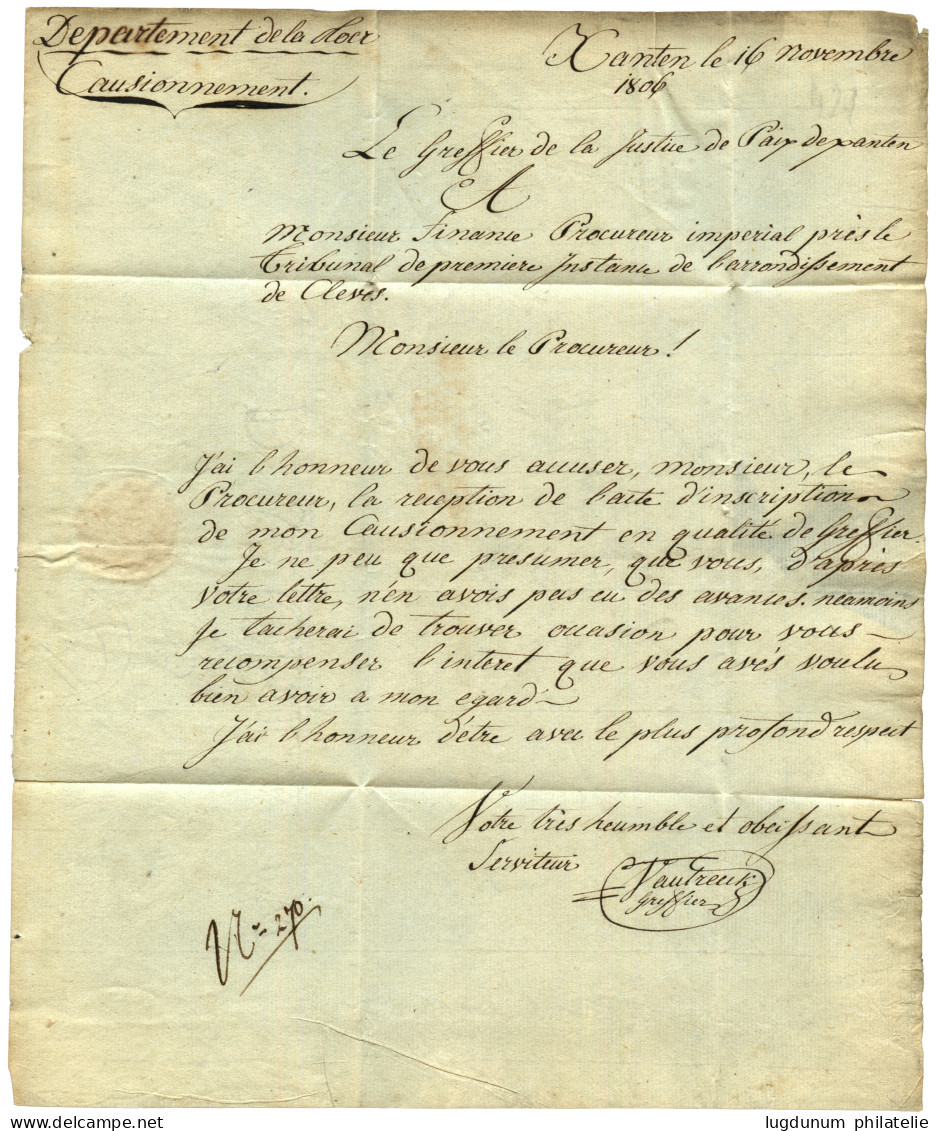 Departement de la Roer
Causionnement.
Xanten le 16 novembre
1806
Le Greffier de la Justice de Paix de xanten
A
Monsieur Finance Procureur imperial près le
Tribunal de premiere Instance de l'arrondissement
de Cleves.
Monsieur le Procureur!
J'ai l'honneur de vous accuser, monsieur, le
Procureur, la reception de l'acte d'inscription
de mon Causionnement en qualité de Greffier.
Je ne peu que presumer, que vous, d'après
votre lettre, n'en avois pas eu des avances. neamoins
Je tacherai de trouver occasion pour vous
recompenser l'interet que vous avés voulu
bien avoir a mon egard
J'ai l'honneur d'étre avec le plus profond respect
Votre très heumble et obeissant
Serviteur
Greffier
N° 270.
lugdunum philatelie